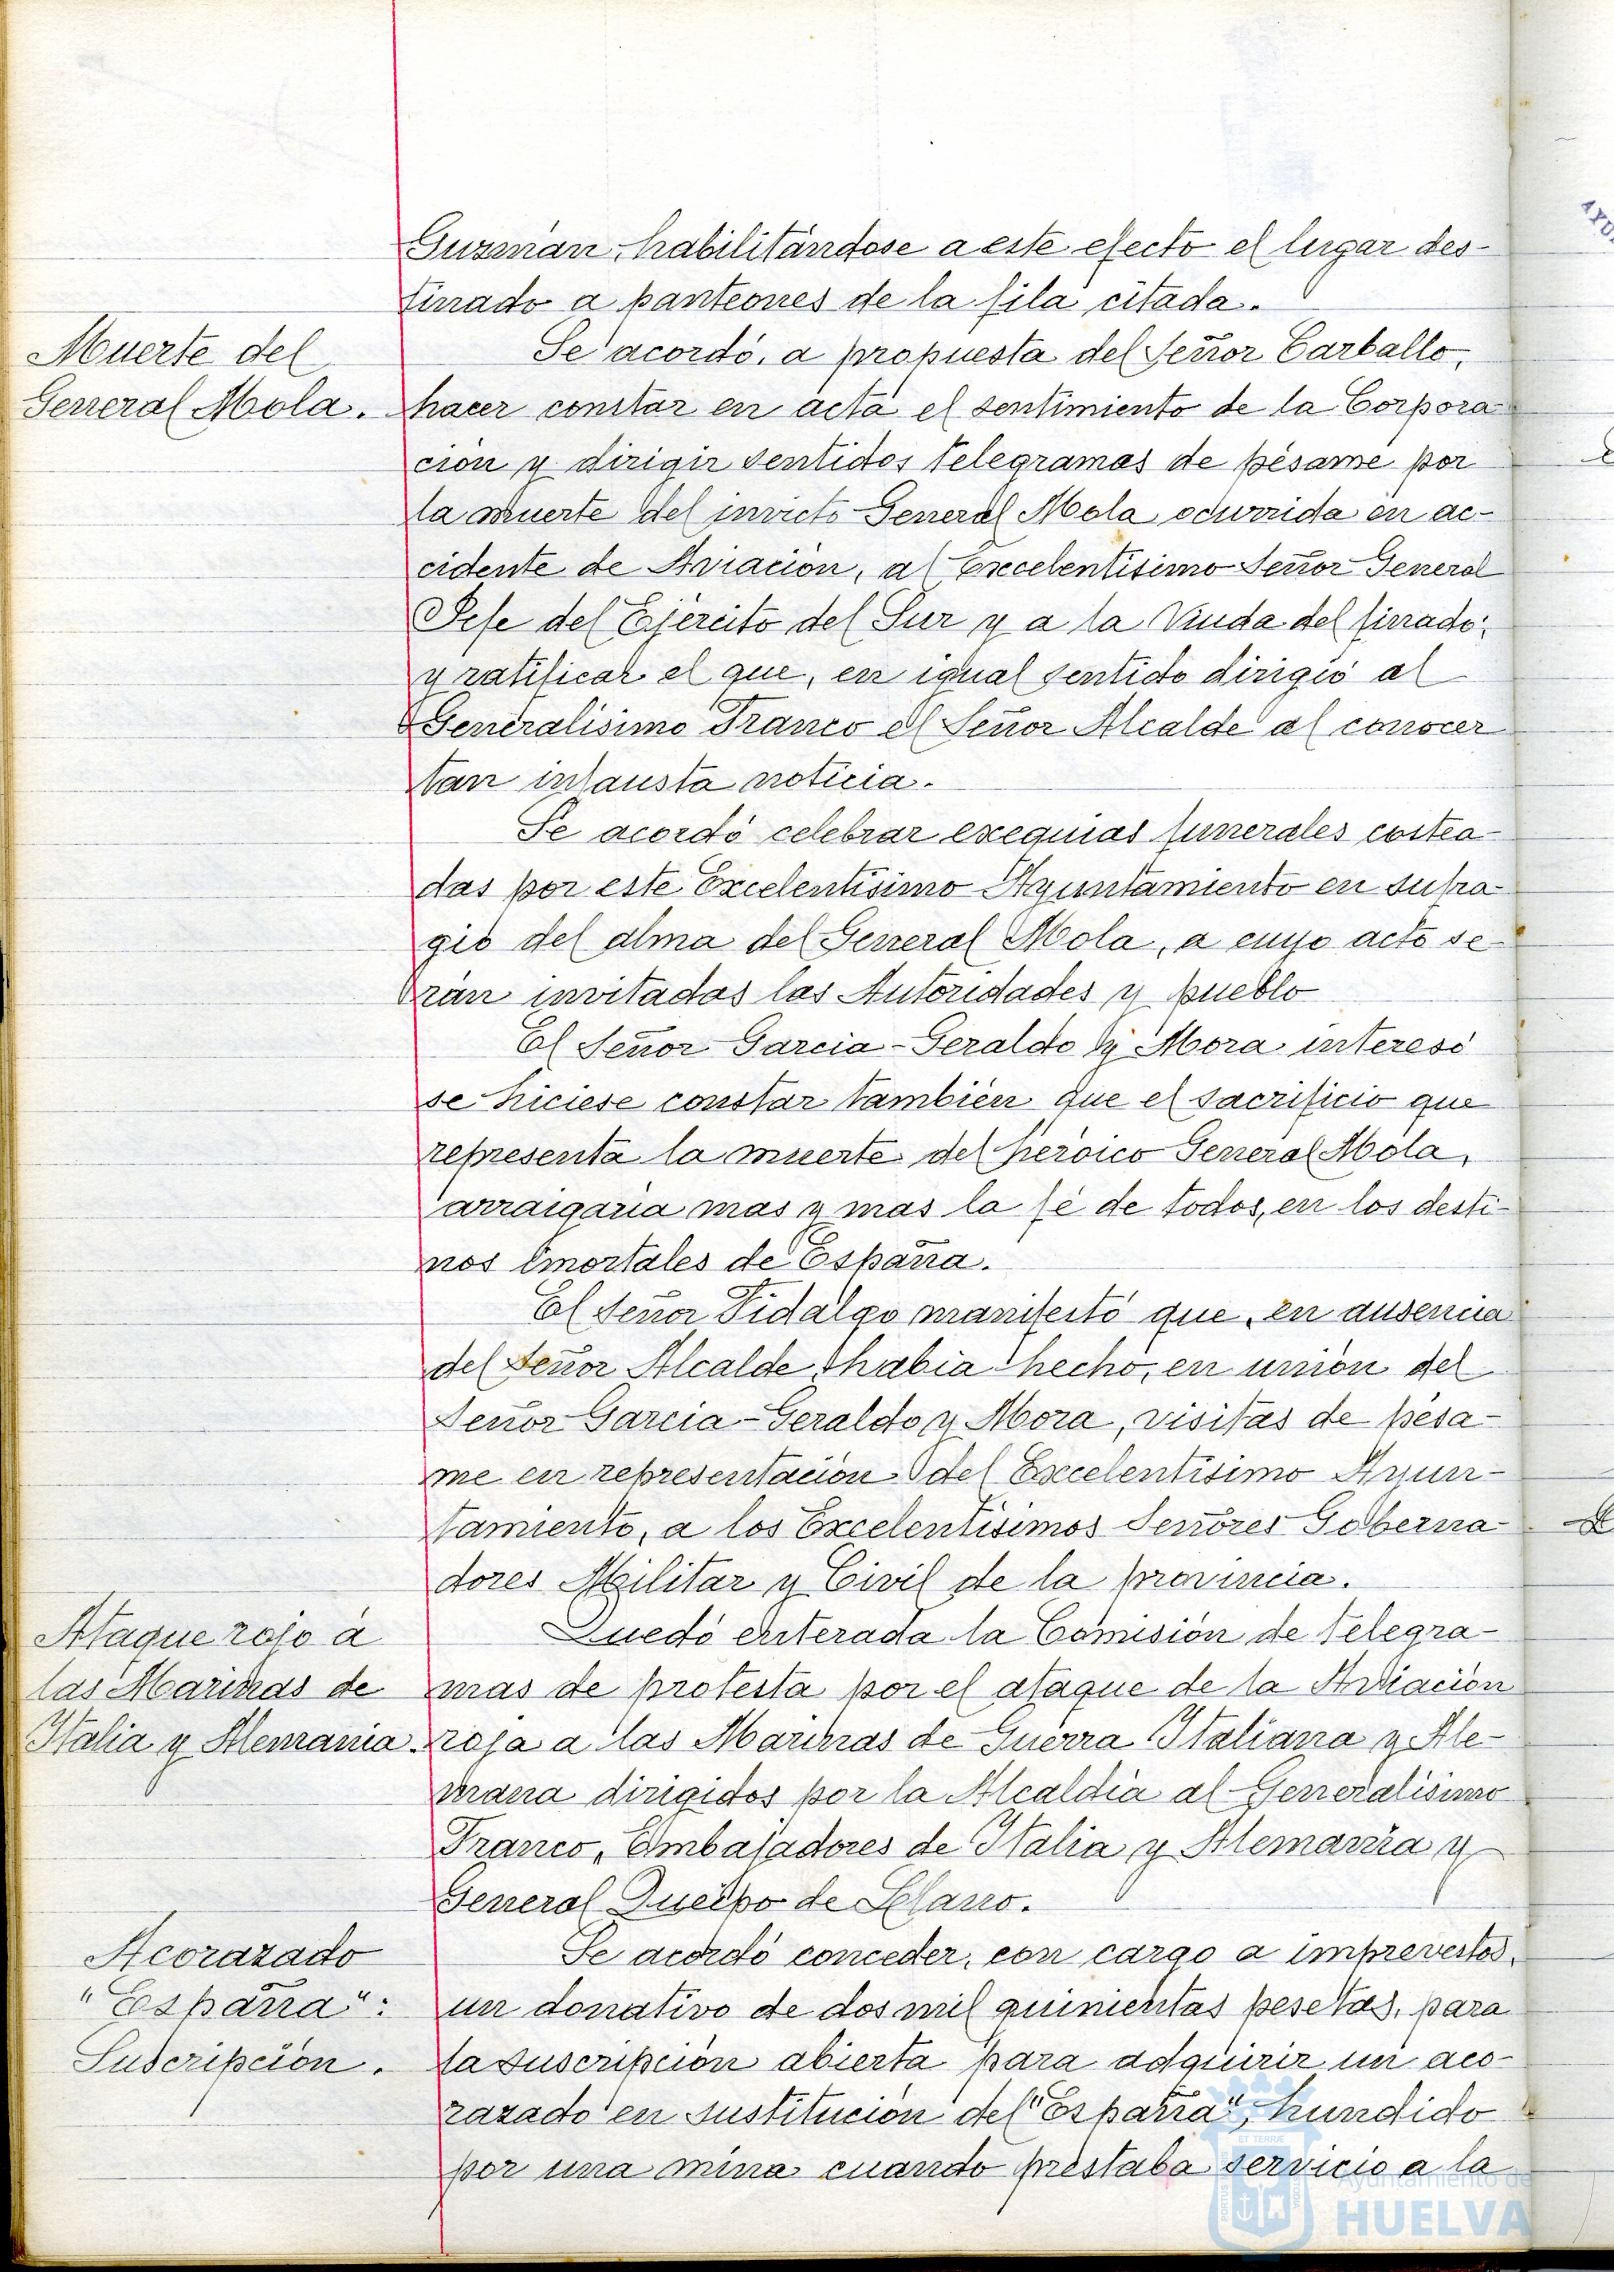 Guzmán, habilitándose a este efecto el lugar des-
tinado a panteones de la fila citada.
Muerte del
General Mola.
Se acordó, a propuesta del Señor Carballo,
hacer constar en acta el sentimiento de la Corpora-
ción y dirigir sentidos telegramas de pésame por
la muerte del invicto General Mola ocurrida en ac-
cidente de Aviación, al Excelentísimo Señor General
Jefe del Ejército del Sur y a la Viuda del finado;
y ratificar el que, en igual sentido dirigió al
Generalísimo Franco el Señor Alcalde al conocer
tan infausta noticia.
Se acordó celebrar exequias funerales costea-
das por este Excelentísimo Ayuntamiento en sufra-
gio del alma del General Mola, a cuyo acto se-
rán invitadas las Autoridades y pueblo
El Señor Garcia-Geraldo y Mora interesó
se hiciese constar también que el sacrificio que
representa la muerte del heróico General Mola,
arraigaría mas y mas la fé de todos, en los desti-
nos inmortales de España.
El Señor Fidalgo manifestó que, en ausencia
del Señor Alcalde, había hecho, en unión del
Señor Garcia-Geraldo y Mora, visitas de pésa-
me en representación del Excelentísimo Ayun-
tamiento, a los Excelentísimos Señores Goberna-
dores Militar y Civil de la provincia.
Ataque rojo á
las Marinas de
Italia y Alemania.
Quedó enterada la Comisión de telegra-
mas de protesta por el ataque de la Aviación
roja a las Marinas de Guerra Italiana y Ale-
mana dirigidos por la Alcaldía al Generalísimo
Franco, Embajadores de Italia y Alemania y
General Queipo de Llano.
Acorazado
"España":
Suscripción.
Se acordó conceder, con cargo a imprevistos,
un donativo de dos mil quinientas pesetas, para
la suscripción abierta para adquirir un aco-
razado en sustitución del "España", hundido
por una mina cuando prestaba servicio a la
Ayuntamiento de
HUELVA